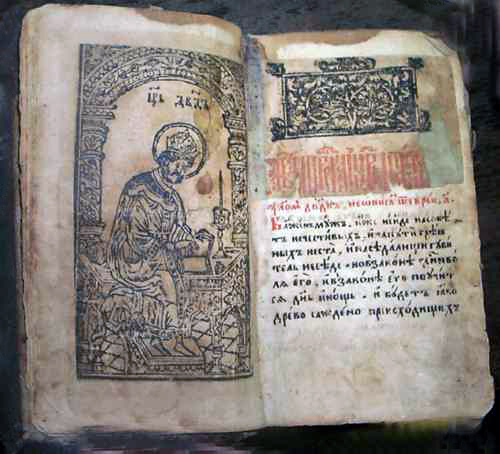 Цр҃ь дв҃дъ
Блаженъ мѹжъ, иже неиде насовѣ
тъ нечестивыхъ, и напѹти грѣш
ныхъ неста, и насѣдалищи гѹби
тель неседе. новзаконѣ гн҃и во
ля его, ивзаконѣ его поѹчит
ся дн҃ь инощь. и бѹдетъ ꙗко
древо саждено приисходищихъ